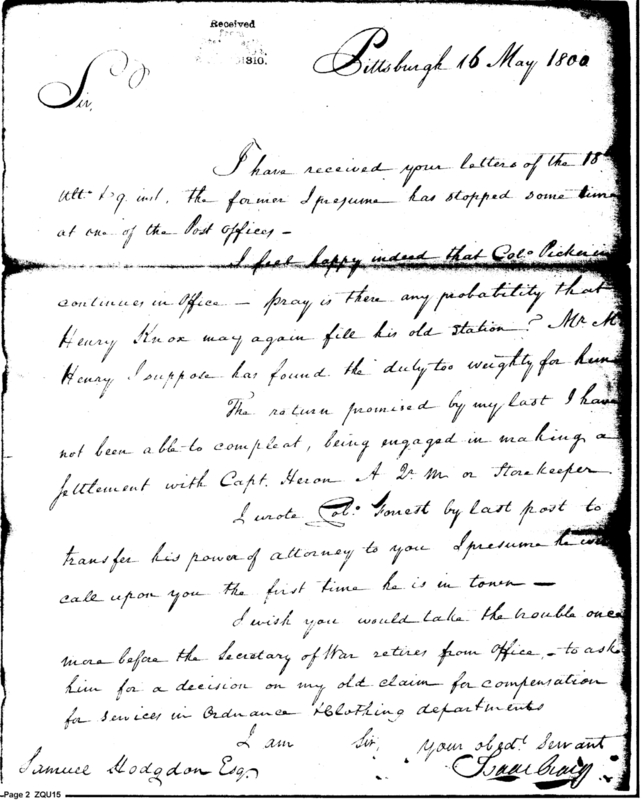 Received
1310.
Pittsburgh 16 May 1800
Sir,
I have received your letters of the 18th
ulto & 9 inst, the former I presume has stopped some time
at one of the Post Offices -
I feel happy indeed that Colo Pickerin
continues in Office - pray is there any probability that
Henry Knox may again fill his old station? Mr M
Henry I suppose has found the duty too weighty for him
The return promised by my last I have
not been able to compleat, being engaged in making a
settlement with Capt. Heron A Q. M or Storekeeper
I wrote Colo Forrest by last post to
transfer his power of attorney to you I presume he will
call upon you the first time he is in town -
I wish you would take the trouble once
more before the Secretary of War retires from Office - to ask
him for a decision on my old claim for compensation
for services in Ordnance & Clothing departments
I am Sir, your obedt Servant
Isaac Craig
Samuel Hodgdon Esqr
Page 2 ZQU15